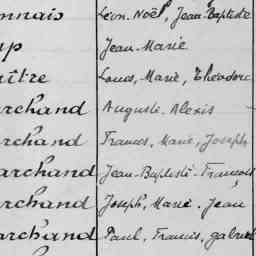 nnais Léon, Noël, Jean-Baptiste
up Jean-Marie
aître Louis, Marie, Théodore
archand Auguste-Alexis
archand Francis, Marie, Joseph
archand Jean-Baptiste-François
archand Joseph, Marie, Jean
archand Paul, Francis, Gabriel